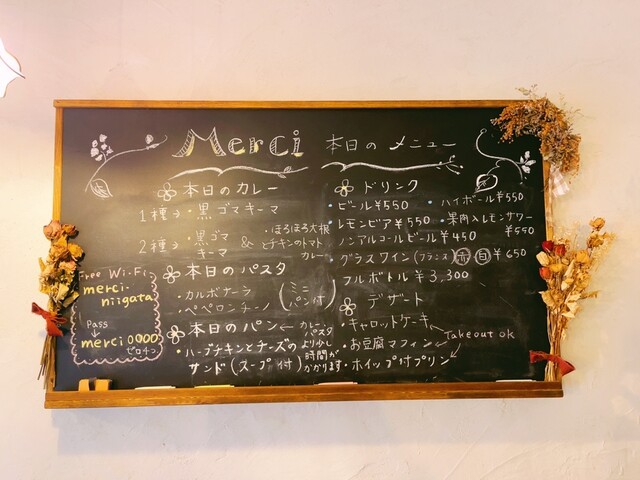 Merci 本日のメニュー
本日のカレー
1種→・黒ゴマキーマ
2種→・黒ゴマキーマ & ・ほろほろ大根とチキンのトマトカレー
本日のパスタ
・カルボナーラ
・ペペロンチーノ
(ミニパン付)
本日のパン←カレー、パスタより少し時間がかかります
・ハーブチキンとチーズの
サンド(スープ付)
Free Wi-Fi
merci-
niigata
Pass
↓
merci0000
ゼロ4つ
ドリンク
・ビール¥550 ・ハイボール¥550
・レモンビア¥550 ・果肉入レモンサワー
¥550
ノンアルコールビール¥450
・グラスワイン(フランス)赤白¥650
フルボトル¥3,300
デザート
・キャロットケーキ
・お豆腐マフィン
・ホイップ付プリン
Takeout ok